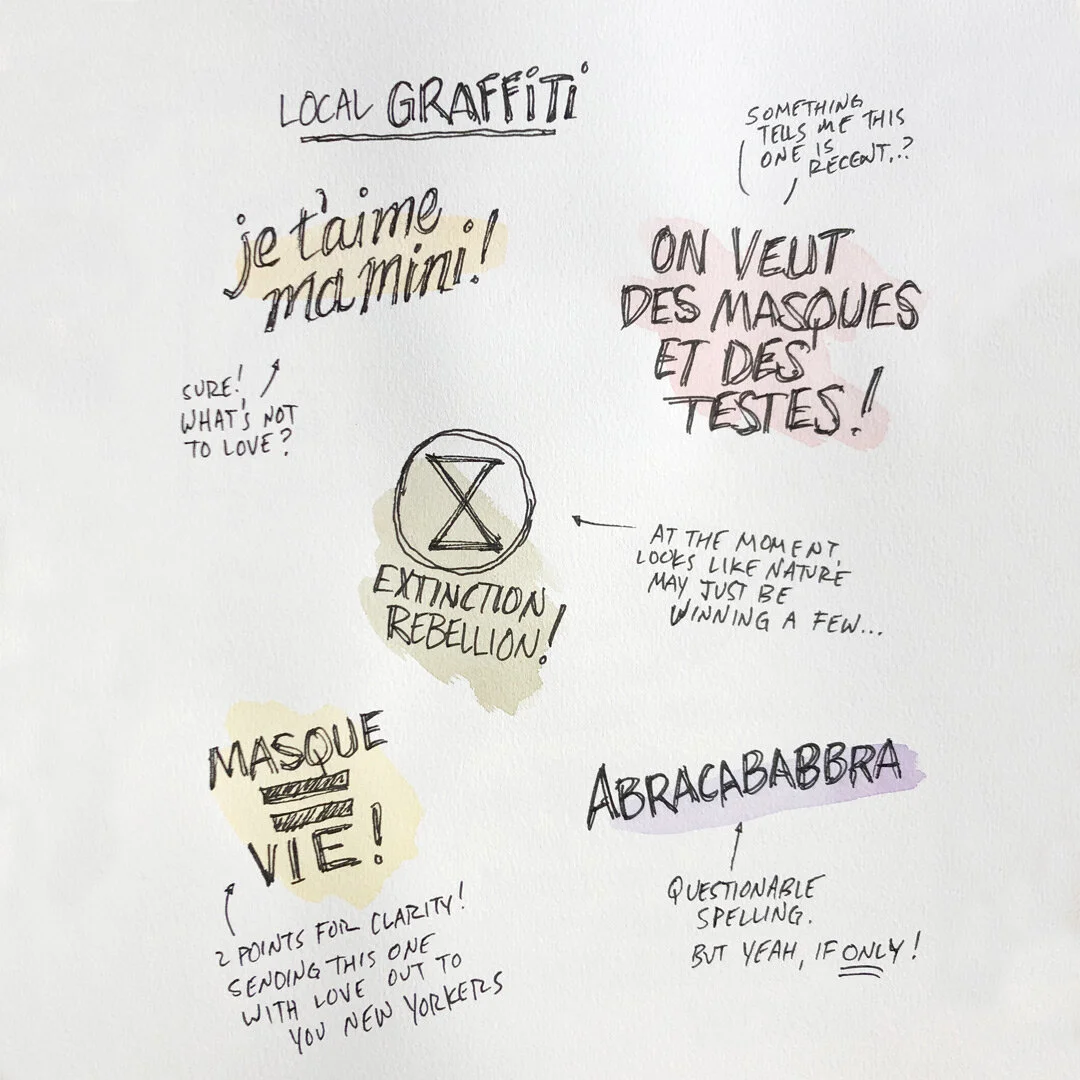 LOCAL GRAFFITI
je t'aime
mamini!
SURE!
WHAT'S NOT
TO LOVE?
SOMETHING
TELLS ME THIS
ONE IS
RECENT..?
ON VEUT
DES MASQUES
ET DES
TESTES!
EXTINCTION
REBELLION!
AT THE MOMENT,
LOOKS LIKE NATURE
MAY JUST BE
WINNING A FEW...
MASQUE
=
VIE!
2 POINTS FOR CLARITY!
SENDING THIS ONE
WITH LOVE OUT TO
YOU NEW YORKERS
ABRACABABBRA
QUESTIONABLE
SPELLING.
BUT YEAH, IF ONLY!